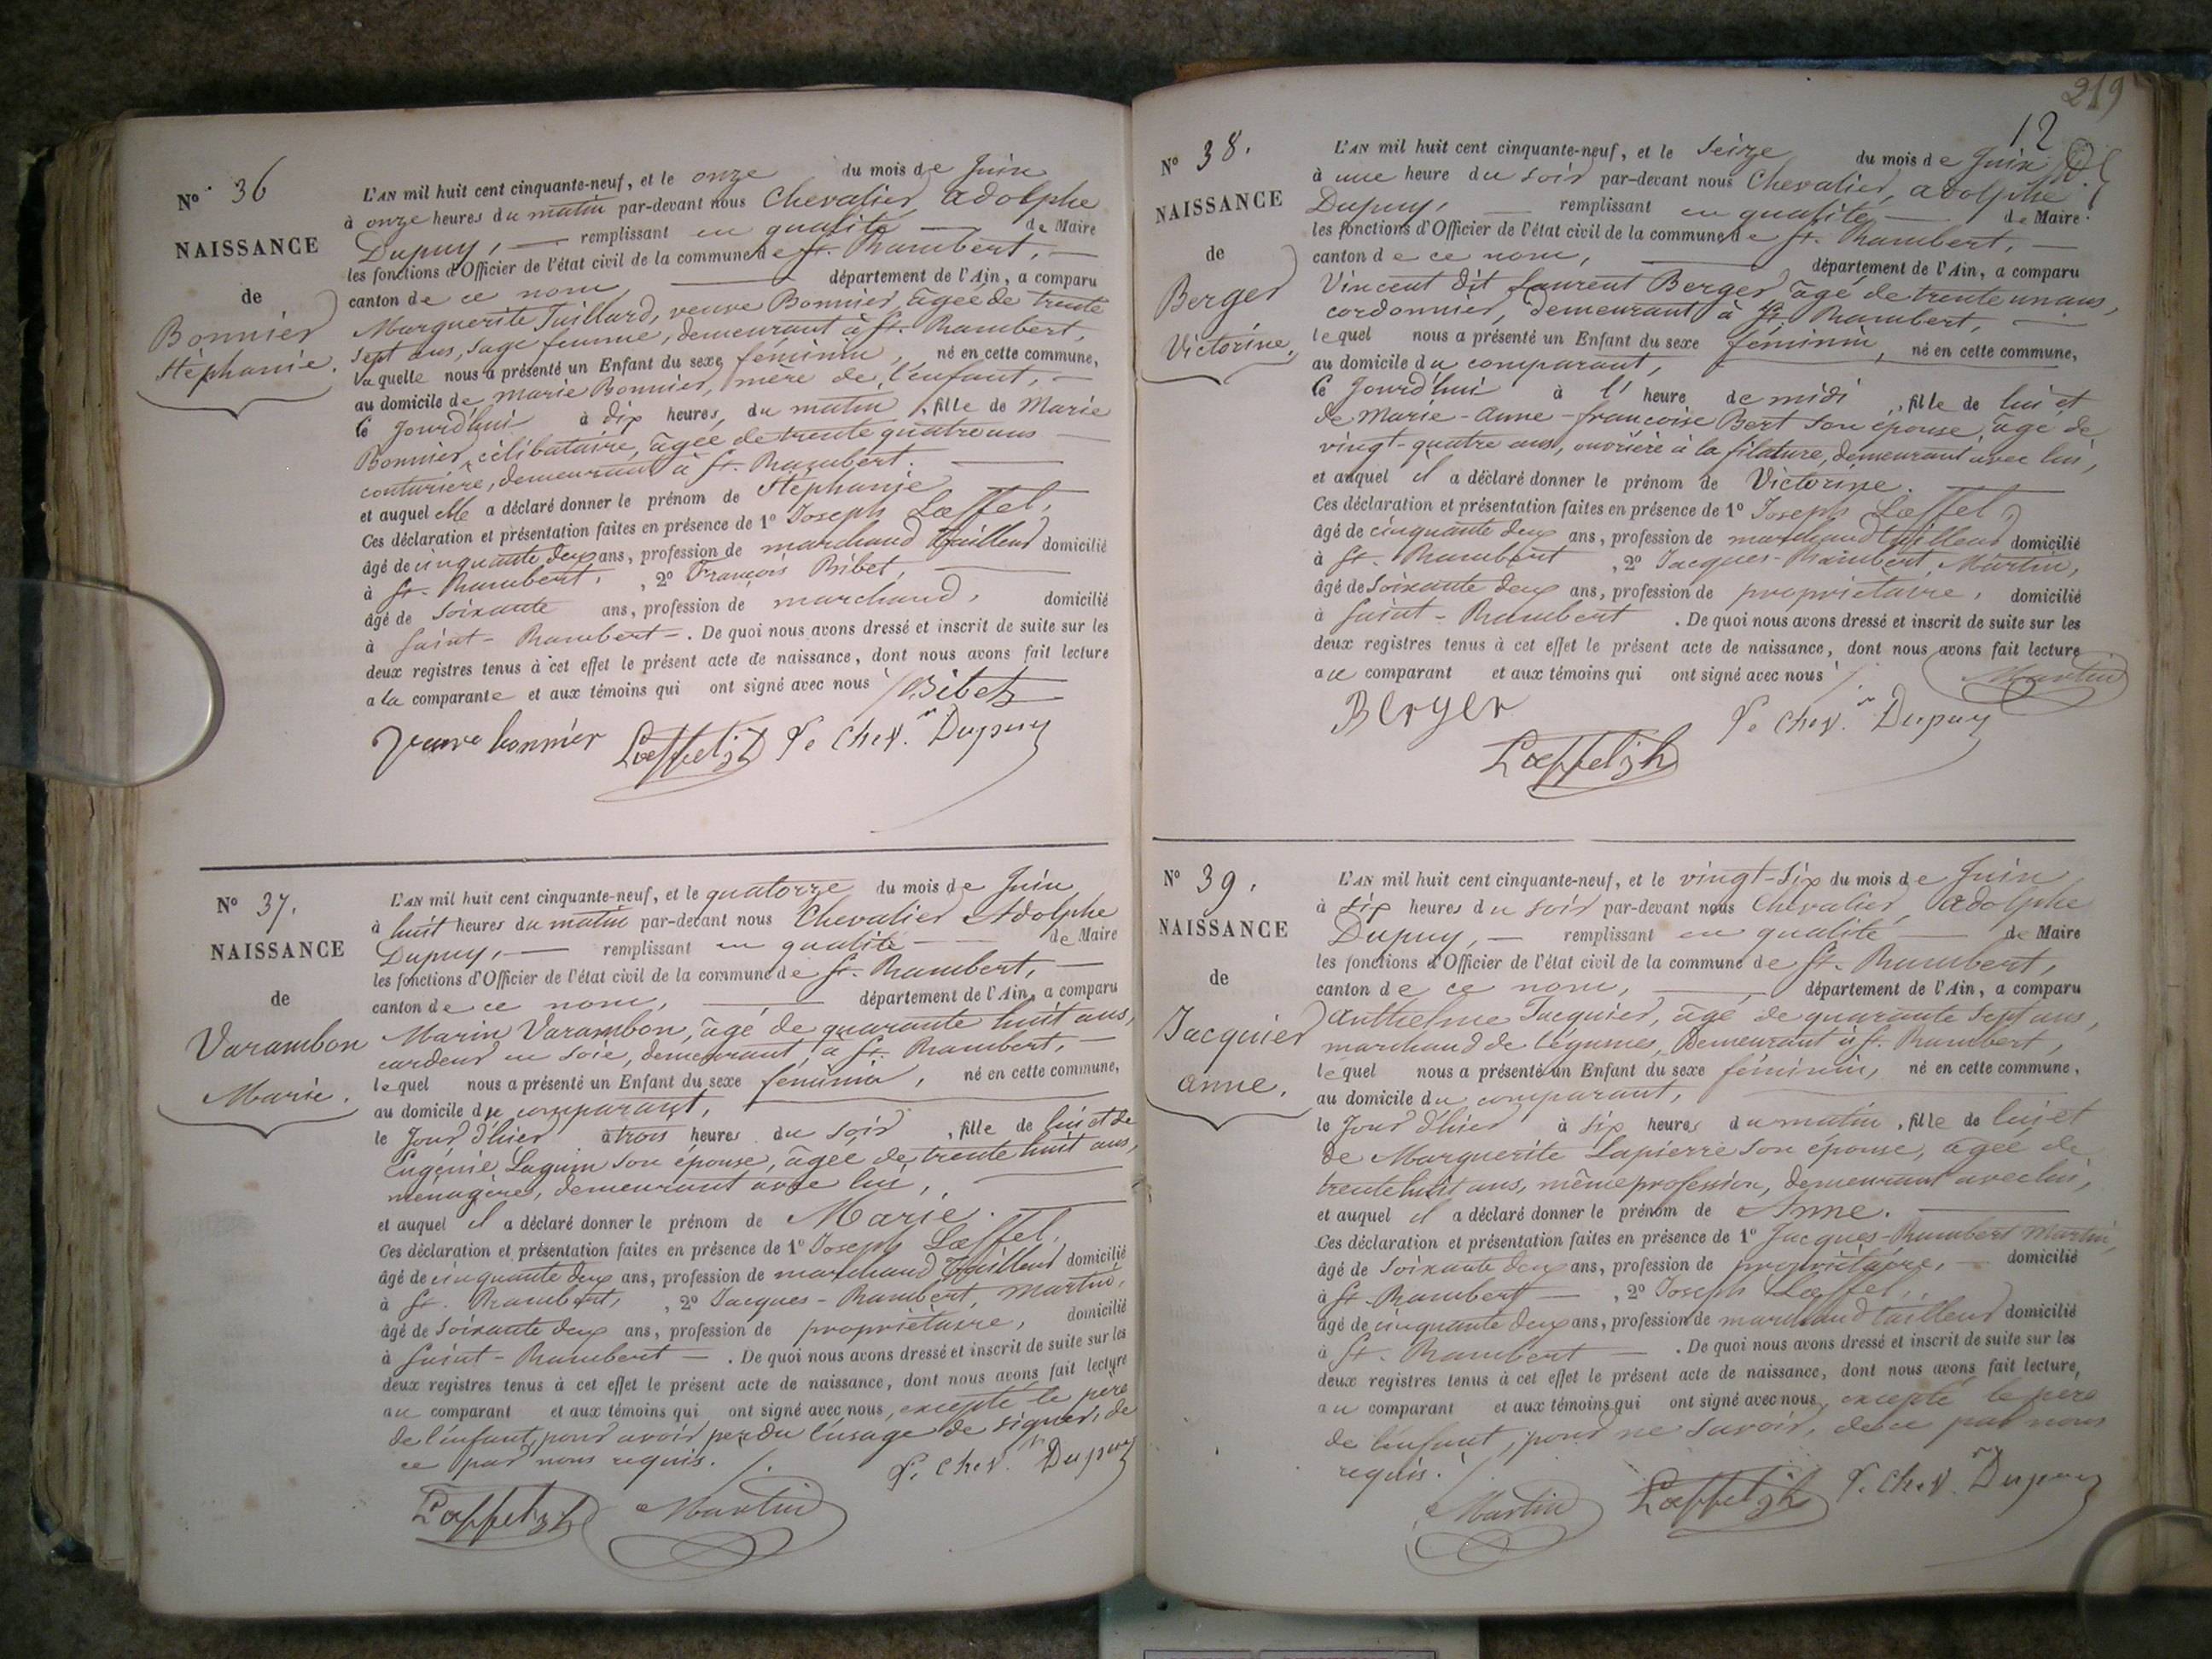 N° 36
NAISSANCE
de
Bonnier
Stéphanie.
L'AN mil huit cent cinquante-neuf, et le onze du mois de Juin
à onze heures du matin par-devant nous Chevalier Adolphe
Dupuy, — remplissant en qualité — de Maire
les fonctions d'Officier de l'état civil de la commune de St. Rambert, —
canton de ce nom, — département de l'Ain, a comparu
Marguerite Juillard, veuve Bonnier, âgée de trente
sept ans, sage femme, demeurant à St. Rambert,
laquelle nous a présenté un Enfant du sexe féminin, né en cette commune,
au domicile de Marie Bonnier, mère de l'enfant, —
ce Jourd'hui à dix heures, du matin, fille de Marie
Bonnier, célibataire, âgée de trente quatre ans —
couturière, demeurant à St. Rambert. —
et auquel elle a déclaré donner le prénom de Stéphanie —
Ces déclaration et présentation faites en présence de 1° Joseph Lœffel,
âgé de cinquante deux ans, profession de marchand tailleur domicilié
à St. Rambert, , 2° François Bibet, —
âgé de soixante ans, profession de marchand, domicilié
à Saint-Rambert —. De quoi nous avons dressé et inscrit de suite sur les
deux registres tenus à cet effet le présent acte de naissance, dont nous avons fait lecture
a la comparante et aux témoins qui ont signé avec nous
Bibet
veuve bonnier Lœffel Le Chevr. Dupuy
N° 37.
NAISSANCE
de
Varambon
Marie.
L'AN mil huit cent cinquante-neuf, et le quatorze du mois de Juin
à huit heures du matin par-devant nous Chevalier Adolphe
Dupuy, — remplissant en qualité — de Maire
les fonctions d'Officier de l'état civil de la commune de St. Rambert, —
canton de ce nom, — département de l'Ain, a comparu
Marin Varambon, âgé de quarante huit ans,
cardeur en soie, demeurant à St. Rambert, —
lequel nous a présenté un Enfant du sexe féminin, né en cette commune,
au domicile du comparant, —
le Jour d'hier à trois heures du soir, fille de lui et de
Eugénie Laguin son épouse, âgée de trente huit ans,
ménagère, demeurant avec lui, —
et auquel il a déclaré donner le prénom de Marie. —
Ces déclaration et présentation faites en présence de 1° Joseph Lœffel,
âgé de cinquante deux ans, profession de marchand tailleur domicilié
à St. Rambert, , 2° Jacques-Rambert Martin,
âgé de soixante deux ans, profession de propriétaire, domicilié
à Saint-Rambert —. De quoi nous avons dressé et inscrit de suite sur les
deux registres tenus à cet effet le présent acte de naissance, dont nous avons fait lecture
au comparant et aux témoins qui ont signé avec nous, excepté le père
de l'enfant, pour avoir perdu l'usage de signer, de
ce par nous requis.
Le Chevr. Dupuy
Lœffel Martin
219
12
N° 38.
NAISSANCE
de
Berger
Victorine,
L'AN mil huit cent cinquante-neuf, et le seize du mois de Juin
à une heure du soir par-devant nous Chevalier, adolphe
Dupuy, — remplissant en qualité — de Maire
les fonctions d'Officier de l'état civil de la commune de St. Rambert, —
canton de ce nom, — département de l'Ain, a comparu
Vincent dit Laurent Berger âgé de trente un ans,
cordonnier, demeurant à St. Rambert, —
lequel nous a présenté un Enfant du sexe féminin, né en cette commune,
au domicile du comparant, —
ce Jourd'hui à l' heure de midi, fille de lui et
de Marie-Anne-françoise Bert son épouse, âgé de
vingt-quatre ans, ouvrière à la filature, demeurant avec lui,
et auquel il a déclaré donner le prénom de Victorine. —
Ces déclaration et présentation faites en présence de 1° Joseph Lœffel,
âgé de cinquante deux ans, profession de marchand tailleur domicilié
à St. Rambert , 2° Jacques-Rambert Martin,
âgé de soixante deux ans, profession de propriétaire, domicilié
à Saint-Rambert . De quoi nous avons dressé et inscrit de suite sur les
deux registres tenus à cet effet le présent acte de naissance, dont nous avons fait lecture
au comparant et aux témoins qui ont signé avec nous
Martin
Berger Le Chevr. Dupuy
Lœffel
N° 39.
NAISSANCE
de
Jacquier
anne.
L'AN mil huit cent cinquante-neuf, et le vingt-six du mois de Juin
à six heures du soir par-devant nous Chevalier adolphe
Dupuy, — remplissant en qualité — de Maire
les fonctions d'Officier de l'état civil de la commune de St. Rambert,
canton de ce nom, — département de l'Ain, a comparu
Anthelme Jacquier, âgé de quarante sept ans,
marchand de légumes, demeurant à St. Rambert,
lequel nous a présenté un Enfant du sexe féminin, né en cette commune,
au domicile du comparant, —
le Jour d'hier à six heures du matin, fille de lui et
de Marguerite Lapierre son épouse, âgée de
trente huit ans, même profession, demeurant avec lui,
et auquel il a déclaré donner le prénom de Anne. —
Ces déclaration et présentation faites en présence de 1° Jacques-Rambert Martin,
âgé de soixante deux ans, profession de propriétaire, — domicilié
à St. Rambert — , 2° Joseph Lœffel,
âgé de cinquante deux ans, profession de marchand tailleur domicilié
à St. Rambert — . De quoi nous avons dressé et inscrit de suite sur les
deux registres tenus à cet effet le présent acte de naissance, dont nous avons fait lecture,
au comparant et aux témoins qui ont signé avec nous, excepté le père
de l'enfant, pour ne savoir, de ce par nous
requis.
Martin Lœffel Le Chevr. Dupuy